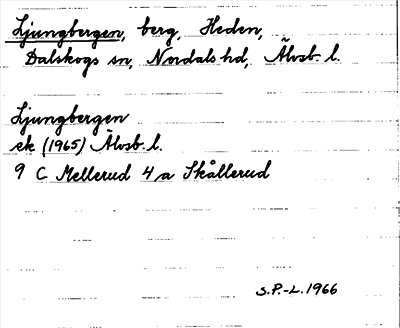 Ljungbergen, berg, Heden,
Dalskogs sn, Nordals hd, Älvsb. l.
Ljungbergen
ek (1965) Älvsb. l.
9 C Mellerud 4 a Skållerud
S.P.-L. 1966